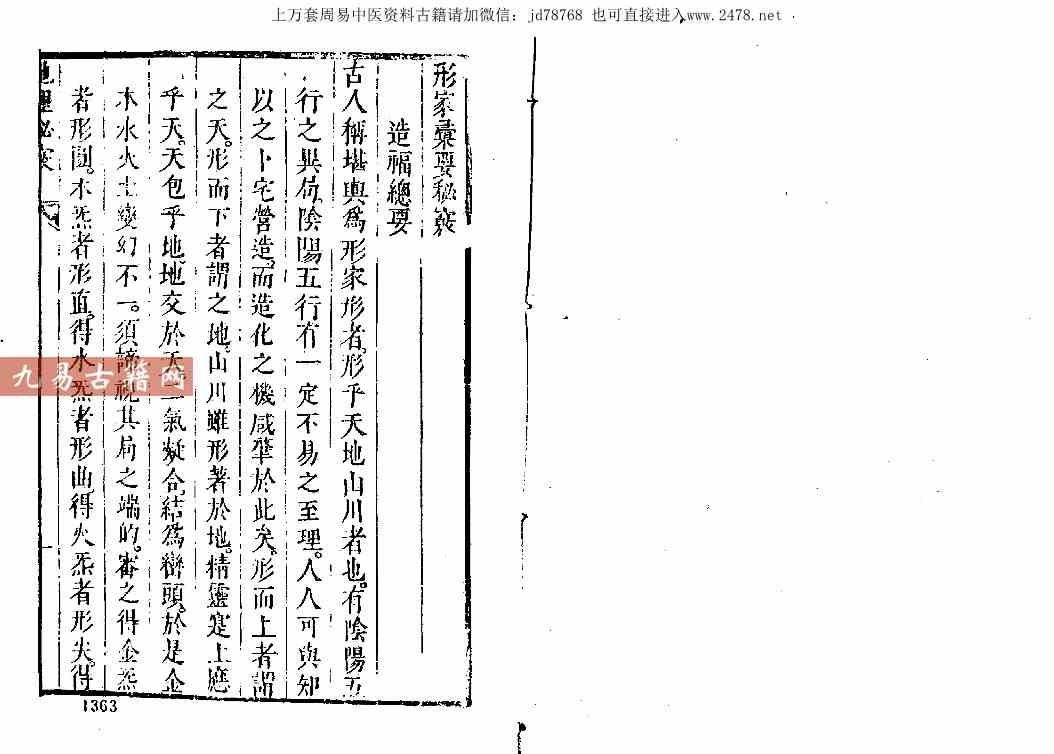 上万套周易中医资料古籍请加微信：jd78768 也可直接进入www.2478.net
形家彙要秘竅
造福總要
古人稱堪輿爲形家形者形乎天地山川者也有陰陽五
行之異局陰陽五行有一定不易之至理。人人可與知
以之卜宅營造而造化之機咸肇於此矣。形而上者謂
之天。形而下者謂之地。山川雖形著於地。精靈寔上應
乎天。天包乎地。地交於天二氣凝合。結爲巒頭。於是金
木水火土變幻不一。須諦視其局之端的。審之得金炁
者形圓。木炁者形直。得水炁者形曲。得火炁者形尖。得
地理秘竅
一
九易古籍网
1363